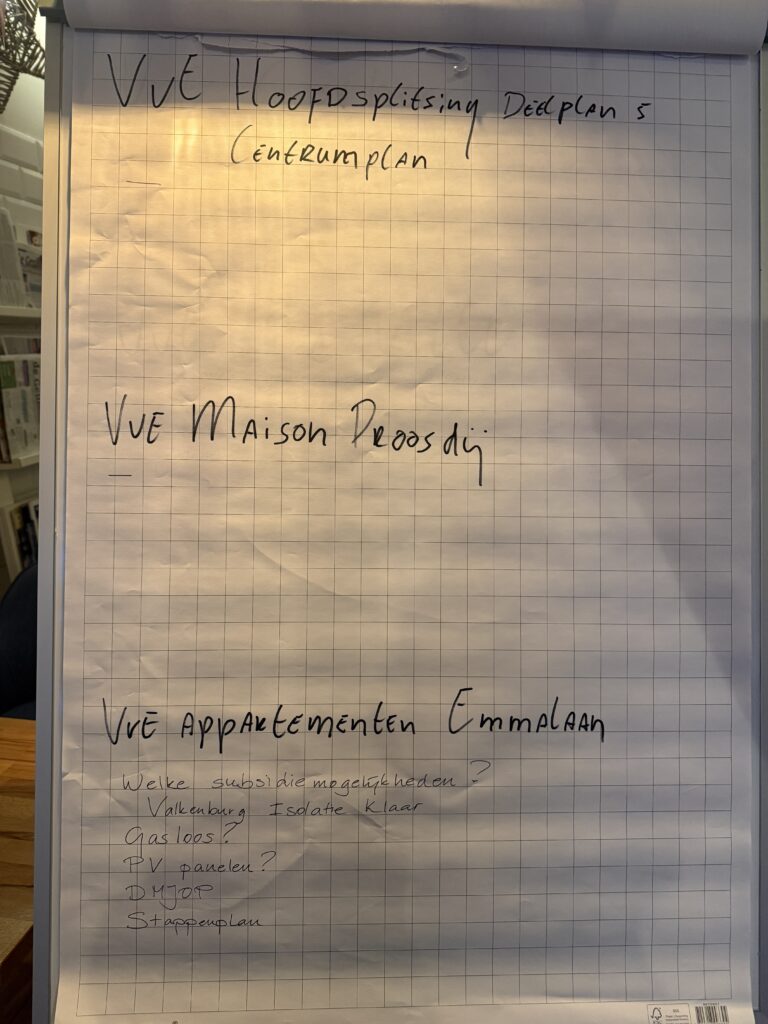 VvE Hoofdsplitsing Deelplan 5
Centrumplan
—
VvE Maison Droosdij
—
VvE Appartementen Emmalaan
Welke subsidiemogelijkheden?
Valkenburg Isolatie Klaar
Gasloos?
PV panelen?
DMJOP
Stappenplan